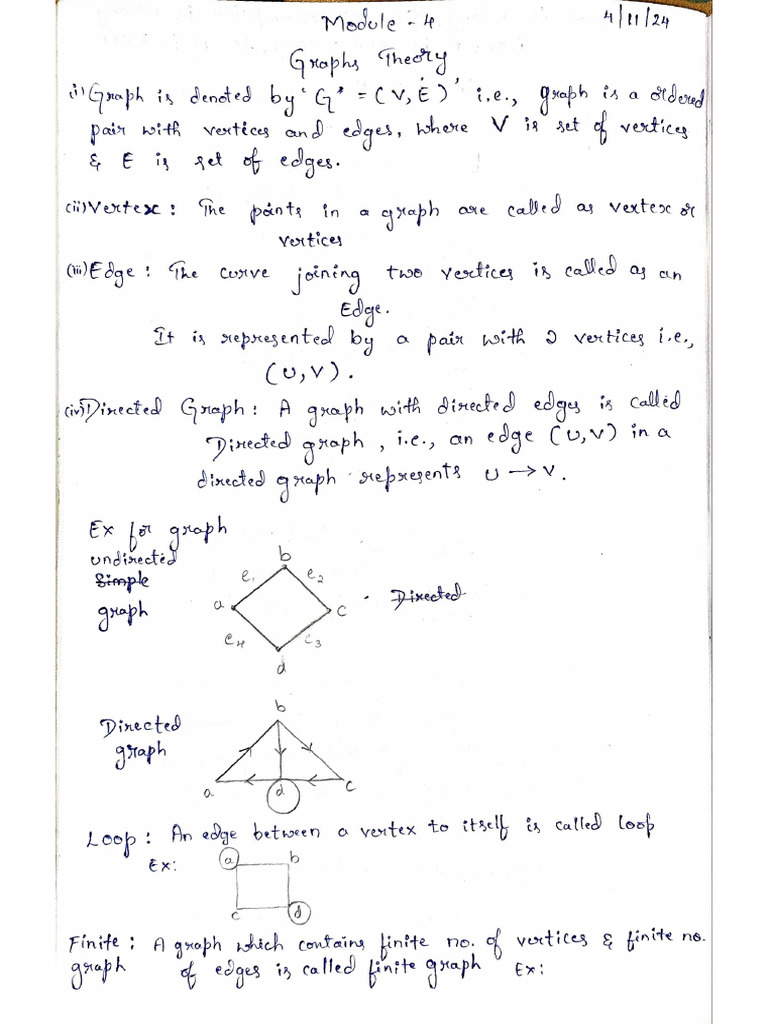 Module - 4
4/11/24
Graphs Theory
(i) Graph is denoted by 'G' = (V, E)' i.e., graph is a ordered
pair with vertices and edges, where V is set of vertices
& E is set of edges.
(ii) Vertex : The points in a graph are called as vertex or
vertices
(iii) Edge : The curve joining two vertices is called as an
Edge.
It is represented by a pair with 2 vertices i.e.,
(U, V).
(iv) Directed Graph : A graph with directed edges is called
Directed graph, i.e., an edge (U, V) in a
directed graph represents U → V.
Ex for graph
undirected
Simple
graph
b
e1 e2
a c
e4 e3
d
Directed
Directed
graph
b
a d c
Loop : An edge between a vertex to itself is called loop
Ex:
a b
c d
Finite : A graph which contains finite no. of vertices & finite no.
graph of edges is called finite graph Ex: